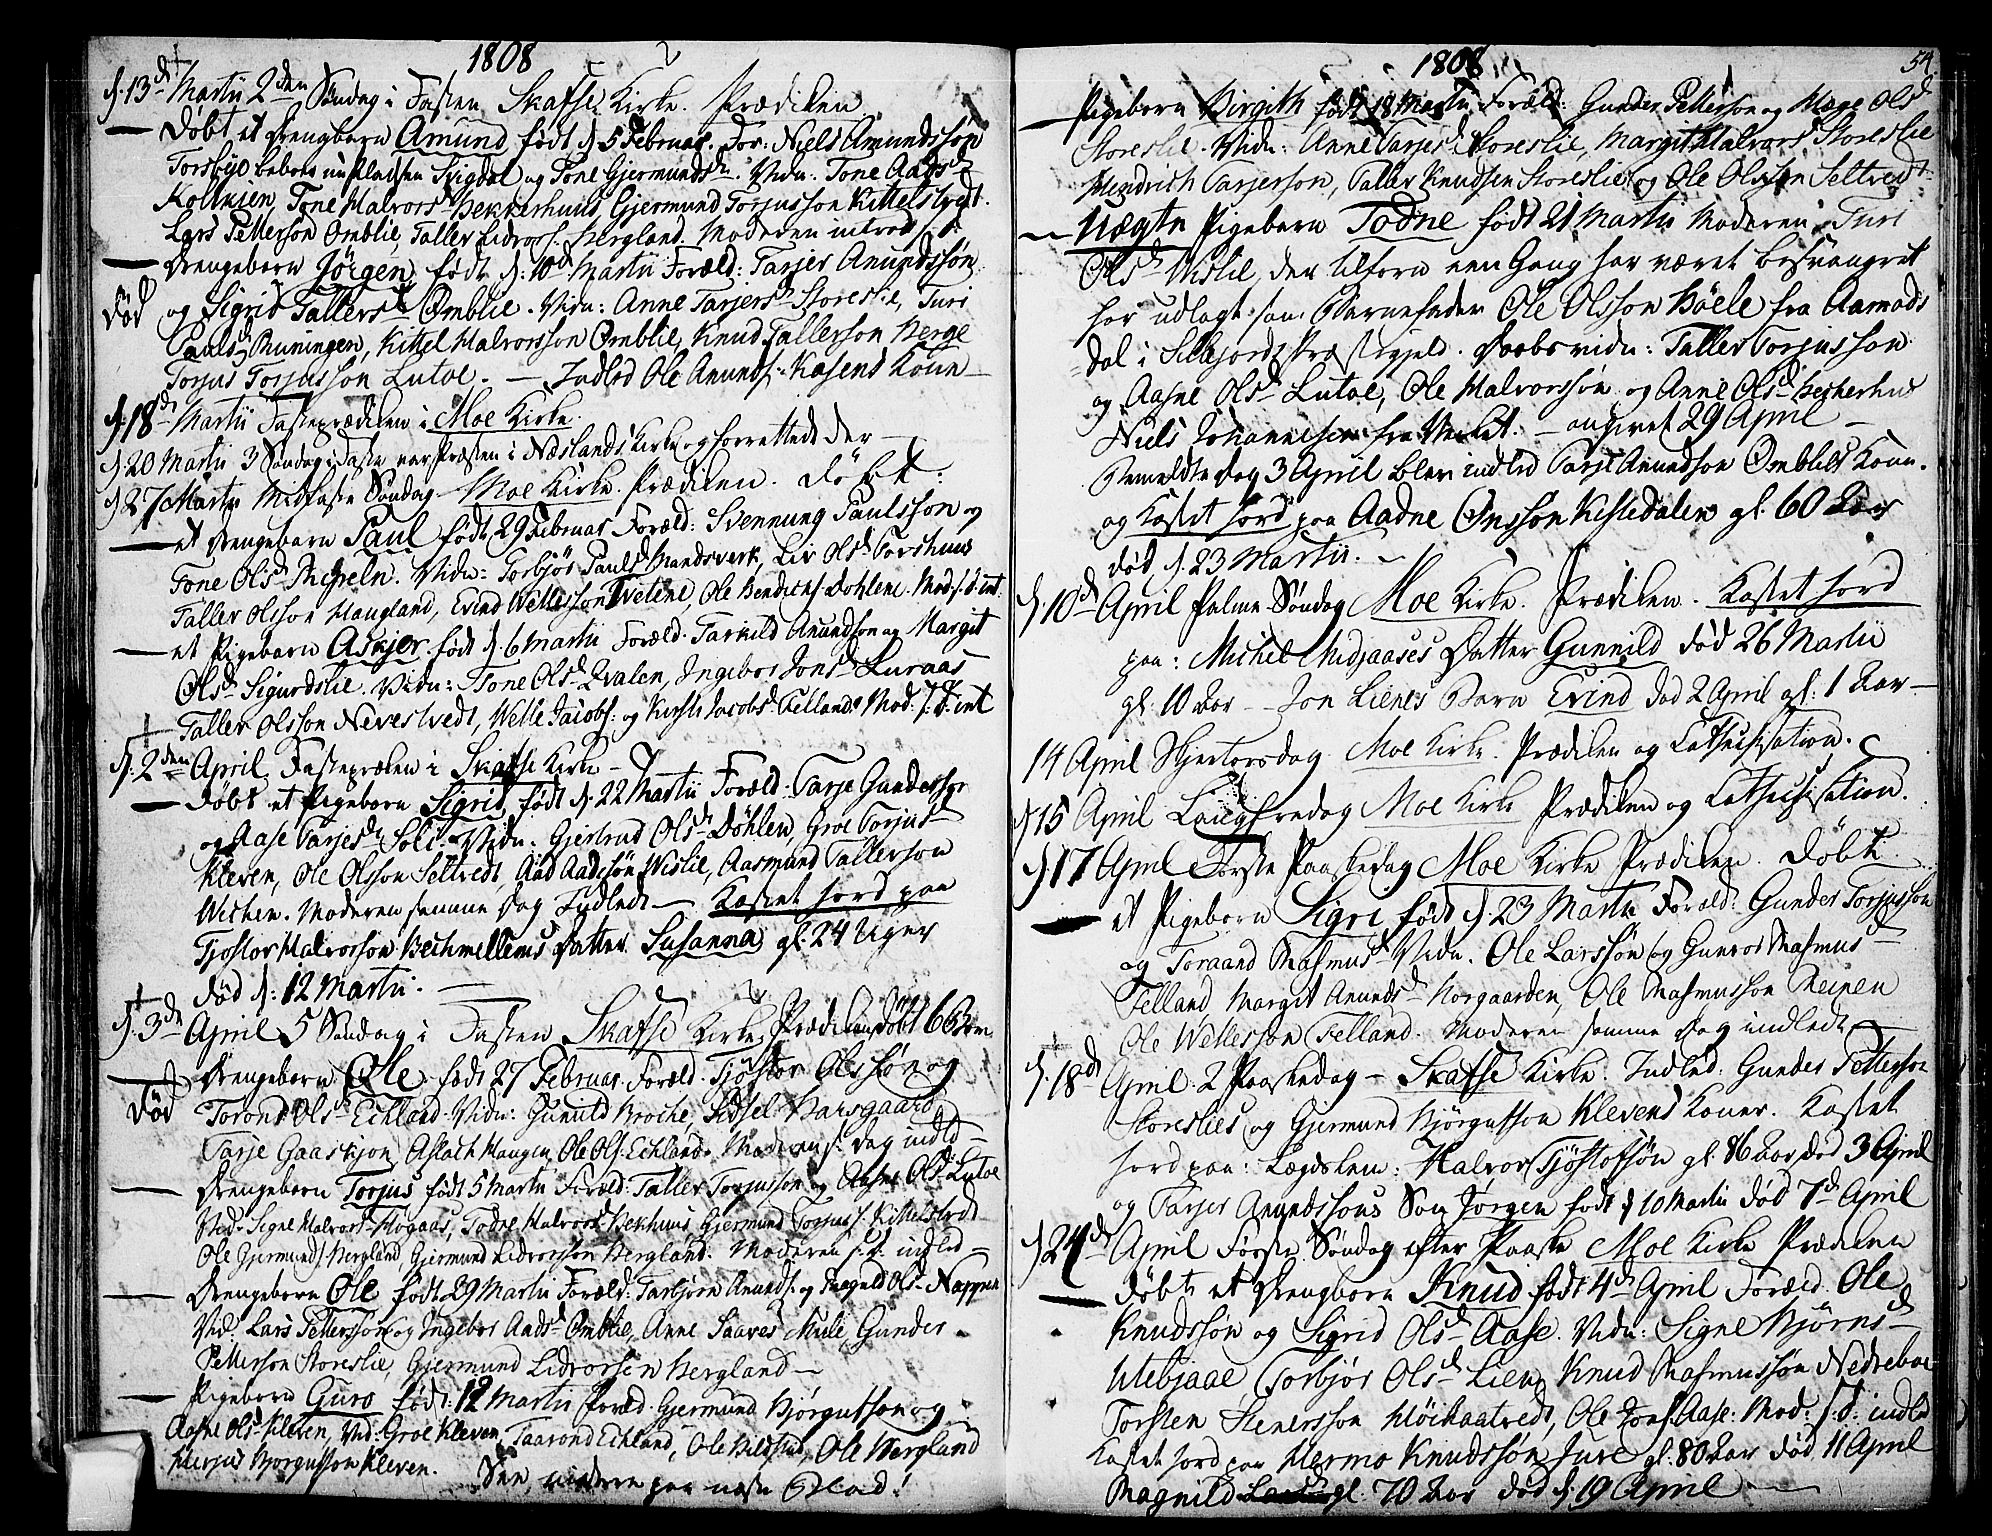 1808
d. 13d Martii 2den Søndag i Fasten Skafse Kirke. Prædiken
Døbt et Drengebarn Amund født d. 5 Februar. For: Niels Amundssøn
Torsbye beboer nu Pladsen Skigdal og Tone Gjermundsd. Vidn: Tone Aadsd
Tone Halvorsd Hekkerhuus, Gjermund Torjusson Kittelstvedt.
Lars Petterson Omblie, Taller Lidvors. Bergland. Moderen introd. s. d.
Drengebarn Jörgen født d. 10d Martii Foræld: Tarjer Anundssøn
Død og Sigrid Tallersd Omblie. Vidn: Anne Tarjersd Storeslie, Turi
Paulsd Kittel Halvorsson Omblie, Knud Tallerson Berge
Torjus Torjusson Lutoe. — Indled Ole Anunds. Kasens Kone
d. 18d Martii Fasteprædiken i Moe Kirke.
d. 20 Martii 3 Søndag i Faste var Præsten i Næslands Kirke og forrettede der —
d. 27 Martii Midfaste Søndag Moe Kirke. Prædiken. Døbt:
et Drengebarn Paul født 29 Februar Foræld: Svennung Paulsson og
Tone Olsd Vidn: Torbjør Paulsd Mandsverk, Liv Olsd
Taller Olsson Haugland, Evind Wellesson Tvetene, Ole Bendichs. Dohlene. Mod. s. d. int.
et Pigebarn Askjer født d. 6 Martii Foræld: Tarkild Anundson og Margit
Olsd Sigurdslie. Vidn: Tone Olsd Qvalen, Ingebor Jonsd Luraas
Taller Olsson Nevestvedt, Welle Jacobs. og Kirsti Jacobsd Felland. Mod. s. d. int
d. 2den April Fastepræken i Skafse Kirke —
Døbt et Pigebarn Sigrid født d. 22 Martii Foræld: Tarje Gunderss.
og Aase Tarjesd Soli. Vidn: Gjertrud Olsd Døhlen, Groe Torjusd
Kleven, Ole Olsson Seltvedt, Aad Aadesøn Wislie, Aasmund Tallerson
Wichen. Moderen samme Dag Indledt — Kastet Jord paa
Tjostov Halvorsson Bechmellems Datter Susanna gl. 24 Uger
død d. 12 Martii. —
d. 3de April 5 Søndag i Fasten Skafse Kirke Prædiken, døbt 6 Børn
Drengebarn Ole født 27 Februar Foræld: Tjöstov Olssøn og
Død Torond Olsd Echland. Vidn: Gunild Broche, Sidsel
Tarje Gaaskjon, Aslach Haugen, Ole Ols. Echland. Moderen s. Dag indld —
Drengebarn Torjus født 5 Martii Foræld: Taller Torjusson og Aasne Olsd Lutoe
Vid: Signe Halvorsd Hogaas, Todne Halvorsd Bekhuus, Gjermund Torjus s. Kittelstvedt
Ole Gjermunds. Bergland, Gjermund Lidvorsson Bergland. Moderen s. d. indled —
Drengebarn Ole født 29 Martii Foræld: Tarbjörn Anunds. og Ragnild Olsd Nappen
Vid: Lars Petterssøn og Ingebor Aadsd Omblie, Anne Saaves Mule, Gunder
Petterson Storeslie, Gjermund Lidvorsen Bergland —
Pigebarn Guro født 12 Martii Foræld: Gjermund Björgufson og
Aasne Olsd Kleven, Vid: Groe Kleven, Taarond Echland, Ole Ole Bergland
Björgusson Kleven.
See videre paa neste Blad!
1808
54
Pigebarn Birgith født 18 Martii Foræld: Gunder Petterson og Olsd
Storeslie. Vidn: Anne Tarjesd Storeslie, Margit Halvorsd Storeslie
Hendrich Tarjerson, Taller Knudsen Storeslie og Ole Olsson Seltvedt
Uægte Pigebarn Todne født 21 Martii Moderen Turi
Olsd Wislie, der tilforn een Gang har været besvangret
har udlagt som Barnefader Ole Olsson Böele fra Aamods
dal i Sillejords Præstegjeld. Daabsvidn: Taller Torjusson
og Aasne Olsd Lutoe, Ole Halvorssøn og Anne Olsd Hekkerhus
Niels Johannesen fra Verket. — angivet 29 April —
Bemeldte Dag 3 April blev indled Tarje Anundson Omblies Kone.
og Kastet Jord paa Aadne Onsson Kisledalen gl. 60 Aar
død d. 23 Martii. —
d. 10d April Palme-Søndag Moe Kirke. Prædiken. Kastet Jord
paa: Michel Midjaases Datter Gunnild død 26 Martii
gl. 10 Aar — Jon Lienes Barn Evind død 2 April gl. 1 Aar —
14 April Skjertorsdag Moe Kirke. Prædiken og Cathechisation.
d. 15 April Langfredag Moe Kirke Prædiken og Cathechisation.
d. 17 April Første Paaskedag Moe Kirke Prædiken. Døbt
et Pigebarn Sigri født d. 23 Martii Foræld: Gunder Torjusson
og Toraand Rasmusd Vidn: Ole Larssøn og Gunvor Rasmusd
Felland, Margit Anundsd Norgaarden, Ole Rasmusson Reinen
Ole Wellesson Felland. Moderen samme Dag indledt —
d. 18d April 2 Paaskedag — Skafse Kirke. Indled: Gunder Petterson
Storeslies og Gjermund Björgusson Klevens Koner. Kastet
Jord paa: Lægdslem: Halvor Tjöstofsøn gl. 86 Aar, død 3 April
og Tarjer Anundssons Søn Jørgen født d. 10 Martii død 7d April
d. 24d April Første Søndag efter Paaske Moe Kirke Prædiken
Døbt et Drengbarn Knud født 4d April Foræld: Ole
Knudssøn og Sigrid Olsd Aase. Vidn: Signe Björnsd
Utebjaae, Torbjör Olsd Lien, Knud Rasmussøn Nedreboe
Torsten Stenersson Höikaatvedt, Ole Jons. Aase: Mod: s. d: indled
Kastet Jord paa Hermo Knudssøn Juve gl. 80 Aar død 11 April
Ragnild gl. 70 Aar død d. 19 April —